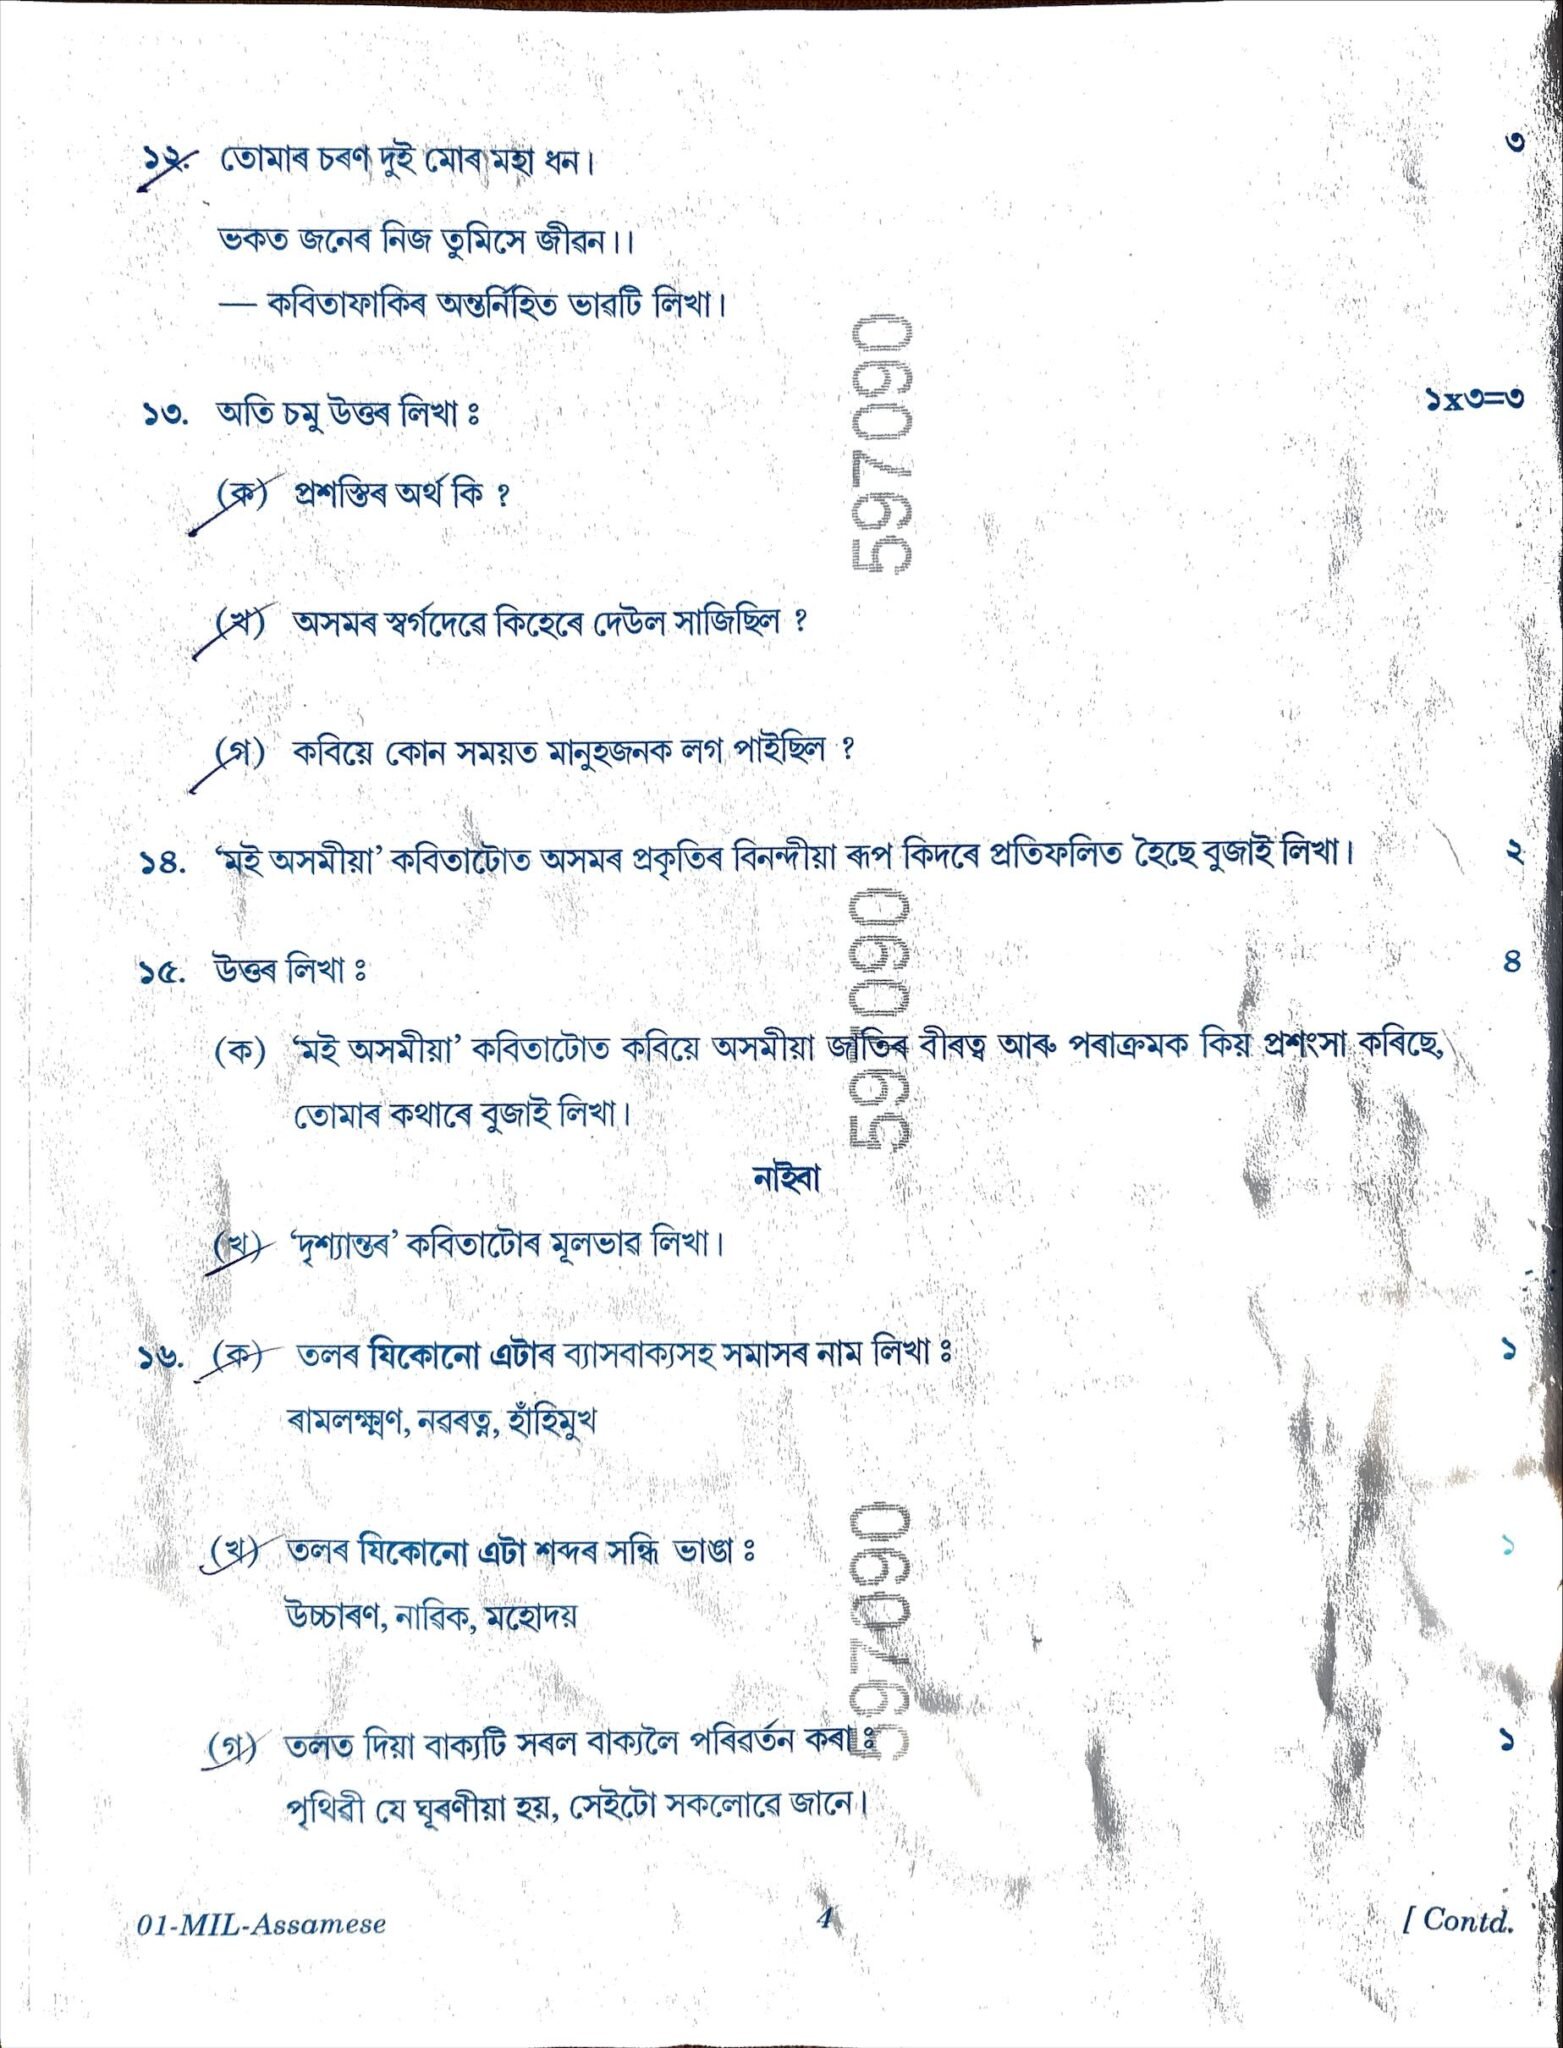 ১২. তোমাৰ চৰণ দুই মোৰ মহা ধন। ৩
ভকত জনেৰ নিজ তুমিসে জীৱন।।
— কবিতাফাকিৰ অন্তৰ্নিহিত ভাৱটি লিখা।
১৩. অতি চমু উত্তৰ লিখা ঃ ১x৩=৩
(ক) প্ৰশস্তিৰ অৰ্থ কি ?
(খ) অসমৰ স্বৰ্গদেৱে কিহেৰে দেউল সাজিছিল ?
(গ) কবিয়ে কোন সময়ত মানুহজনক লগ পাইছিল ?
১৪. ‘মই অসমীয়া’ কবিতাটোত অসমৰ প্ৰকৃতিৰ বিনন্দীয়া ৰূপ কিদৰে প্ৰতিফলিত হৈছে বুজাই লিখা। ২
১৫. উত্তৰ লিখা ঃ ৪
(ক) ‘মই অসমীয়া’ কবিতাটোত কবিয়ে অসমীয়া জাতিৰ বীৰত্ব আৰু পৰাক্ৰমক কিয় প্ৰশংসা কৰিছে,
তোমাৰ কথাৰে বুজাই লিখা।
নাইবা
(খ) ‘দৃশ্যান্তৰ’ কবিতাটোৰ মূলভাৱ লিখা।
১৬. (ক) তলৰ যিকোনো এটাৰ ব্যাসবাক্যসহ সমাসৰ নাম লিখা ঃ ১
ৰামলক্ষ্মণ, নৱৰত্ন, হাঁহিমুখ
(খ) তলৰ যিকোনো এটা শব্দৰ সন্ধি ভাঙা ঃ ১
উচ্চাৰণ, নাৱিক, মহোদয়
(গ) তলত দিয়া বাক্যটি সৰল বাক্যলৈ পৰিৱৰ্তন কৰা ঃ ১
পৃথিৱী যে ঘূৰণীয়া হয়, সেইটো সকলোৱে জানে।
01-MIL-Assamese 4 [ Contd.
597090
597090
597090